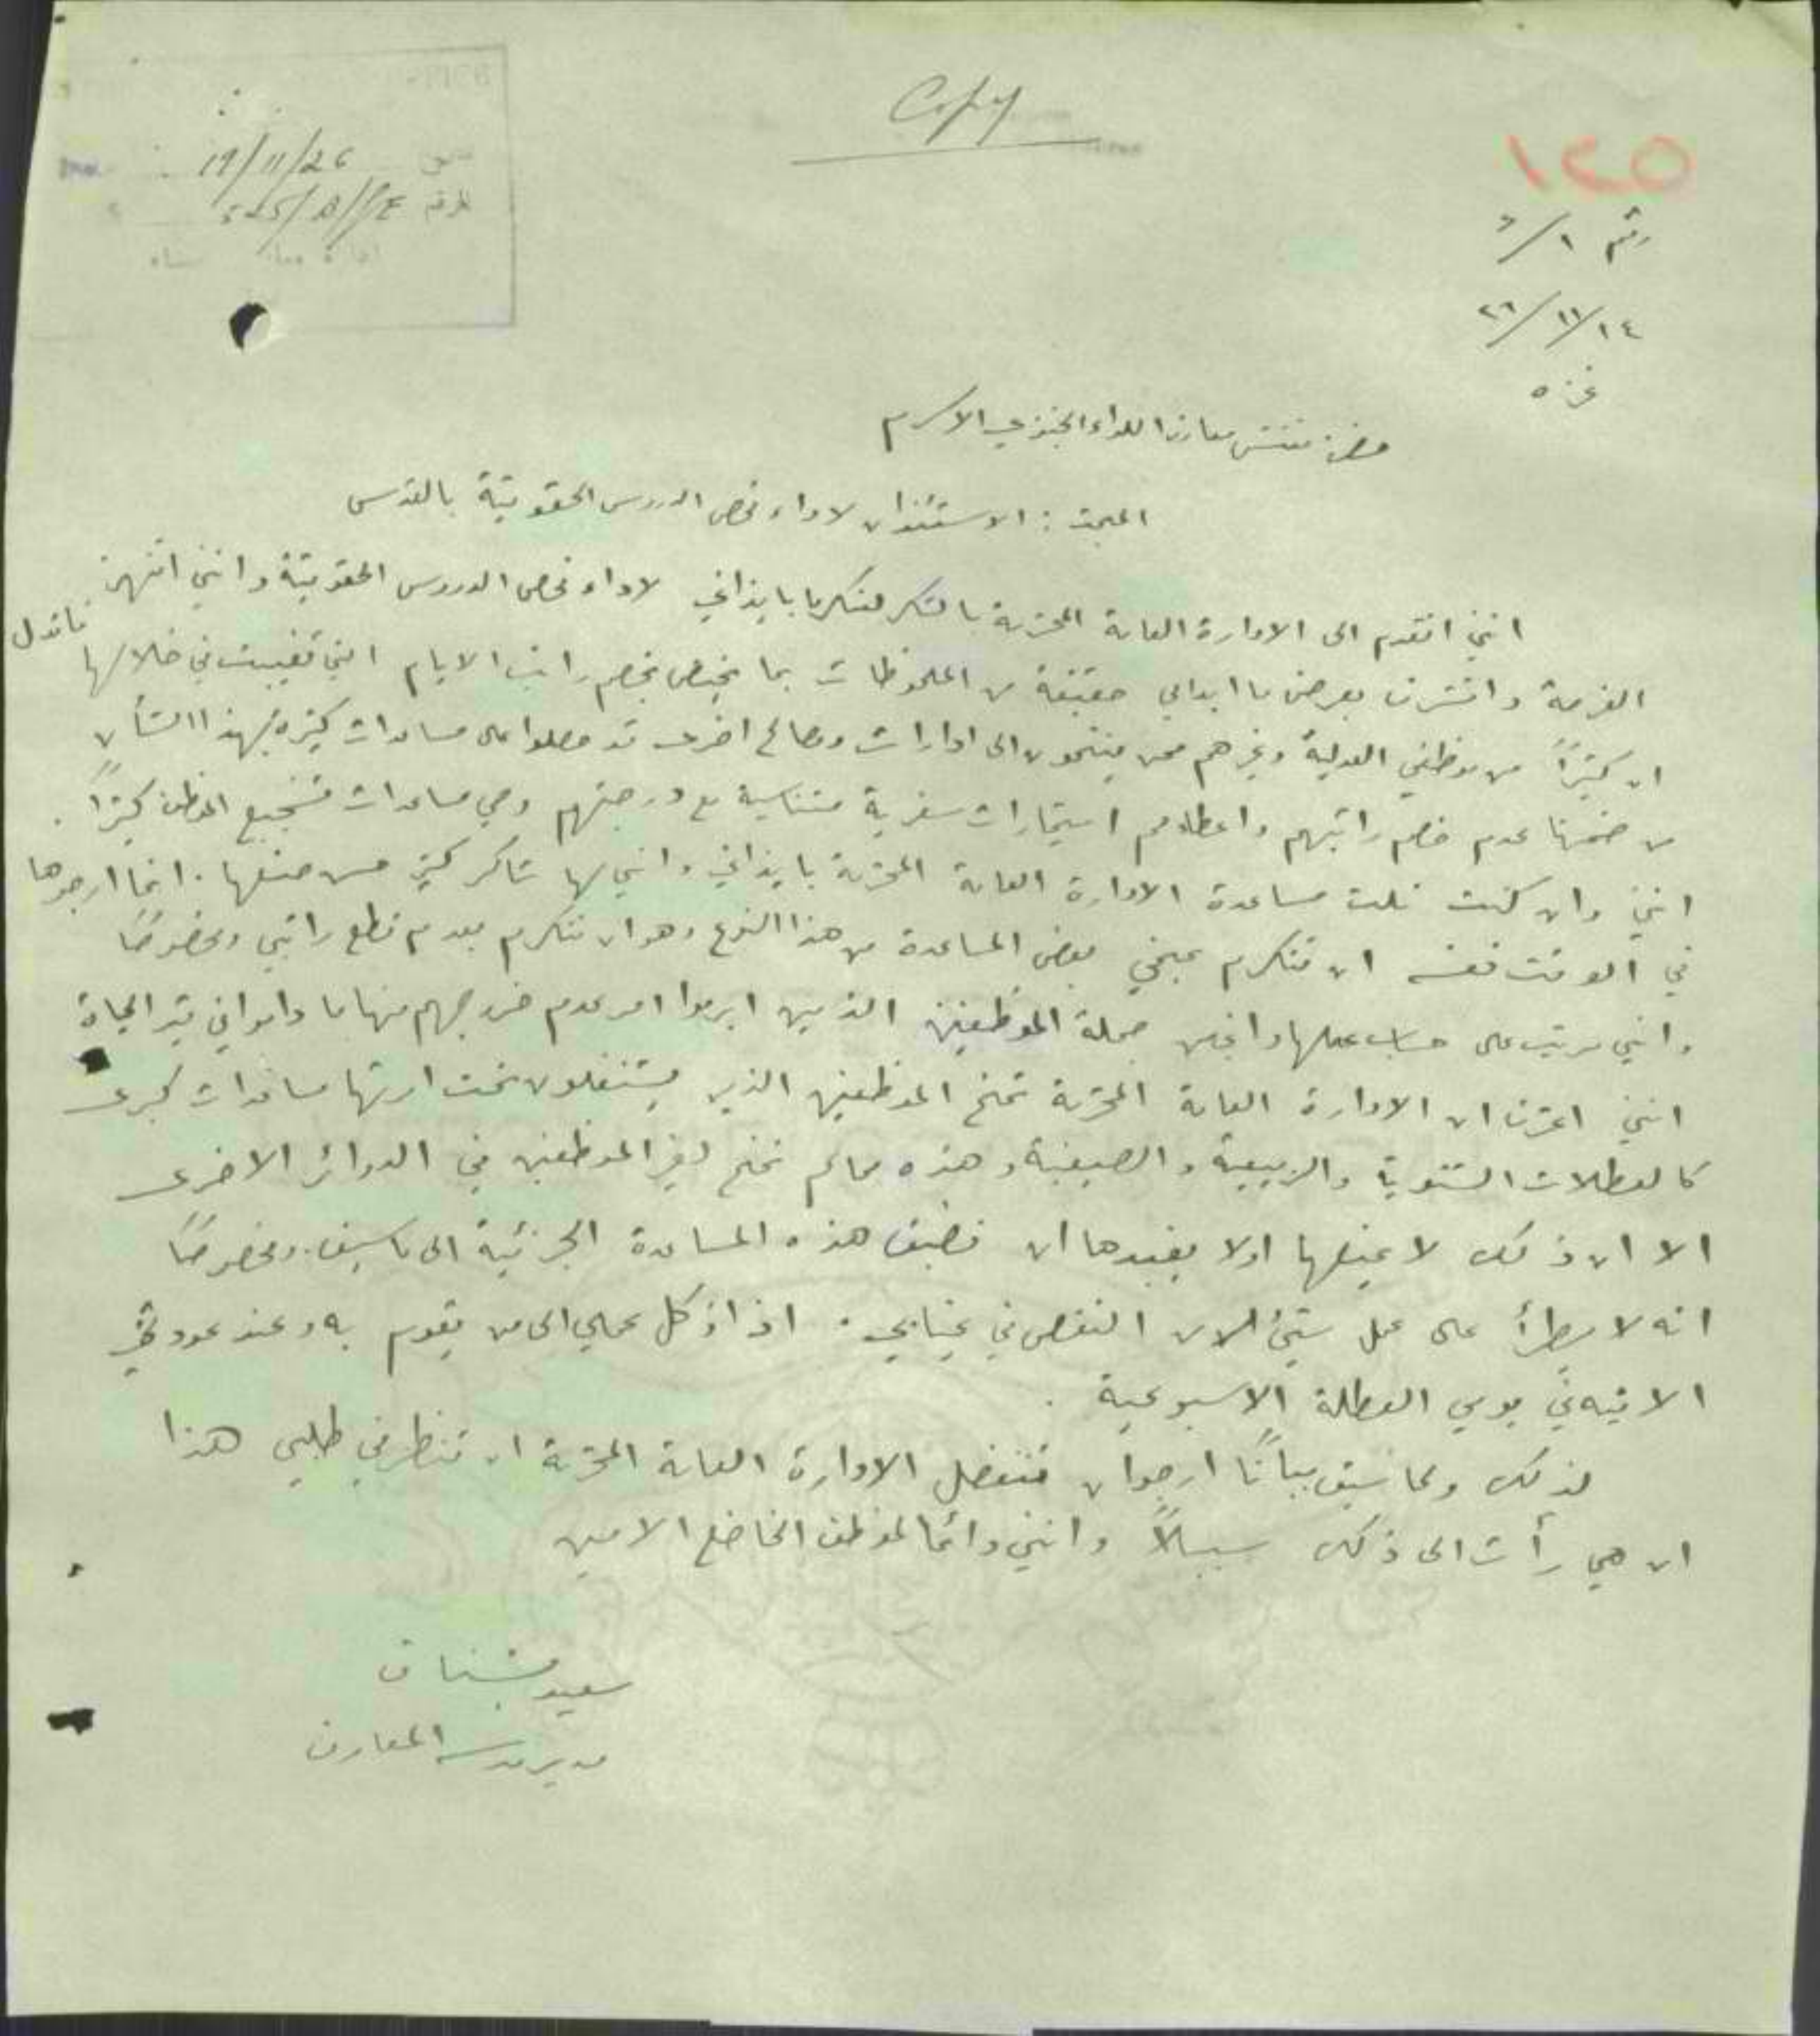 Copy
١٤٥
19/11/26
رقم ٦/١
٢٦/١١/١٤
غزه
حضرة مفتش معارف اللواء الجنوبي الاكرم
المبحث : الاستئذان لاداء فحص الدروس الحقوقية بالقدس
انني اتقدم الى الادارة العامة المحترمة بالشكر لتكرمها بايذاني لاداء فحص الدروس الحقوقية وانني انتهز
الفرصة واتشرف بعرض ما ابداني حقيقة من الملحوظات بما يختص بخصم راتب الايام التي تغيبت في خلالها فاقول
ان كثيرًا من موظفي العدلية وغيرهم ممن ينتمون الى ادارات ومصالح اخرى قد حصلوا على مساعدات كثيرة بهذا الشأن
من ضمنها عدم خصم راتبهم واعطاءهم استمارات سفرية متناسبة مع درجتهم وهي مساعدات تشجيع الموظف كثيرًا .
انني وان كنت نلت مساعدة الادارة العامة المحترمة بايذاني وانني لها شاكر كثير حسن صنعها . انما ارجوها
في الوقت نفسه ان تتكرم بمنحي بعض المساعدة من هذا النوع وهو ان تتكرم بعدم قطع راتبي وخصوصًا
وانني مرتب على حساب عملها من جملة الموظفين الذين ابرموا امر عدم خروجهم منها ما داموا في قيد الحياة
انني اعرف ان الادارة العامة المحترمة تمنح الموظفين الذين يشتغلون تحت ادارتها مساعدات كبرى
كالعطلات الشتوية والربيعية والصيفية وهذه مما لم تمنح لغير الموظفين في الدوائر الاخرى
الا ان ذلك لا يمنعها اولا يقيدها ان تضيف هذه المساعدة الجزئية الى ما سبق . وخصوصًا
انه لا يطرأ على عمل شيئ الان النقص في غيابي . اذ اوكل عملي الى من يقوم به وعند عودتي
الاقيه في يومي العطلة الاسبوعية .
لذلك ولما سبق بيانًا ارجو ان تتفضل الادارة العامة المحترمة ان تنظر في طلبي هذا
ان هي رأت الى ذلك سبيلاً وانني دائمًا لموظف الخاضع الامين
سعيد
مدير مدرسة المعارف